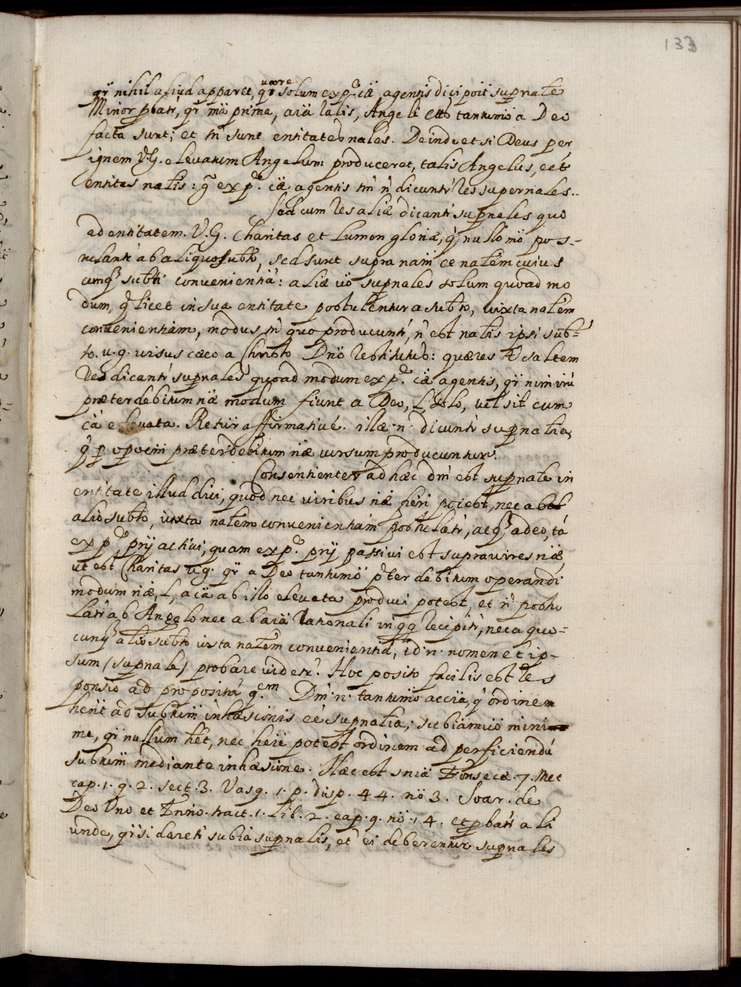 133
qr̃ nihil aliud apparet, qr̃ solum ex pte cãe agentis dici poŝit supñale
uocre
Minor pbatr, qr̃ mã prima, aĩa ralis, Angeli etc tantum̃o a Deo
facta sunt; et tñ sunt entitates nales. Deinde et si Deus per
ignem V.G. eleuatum Angelum produceret, talis Angelus, eët
entitas nalis: g̃ ex pte cãe agentis tm̃ ñ dicuntr res supernales..
Sed cum res aliæ dicantr supñales quo
ad entitatem. V.G. Charitas et Lumen gloriæ, q̃ nullo mõ pos-
tulantr ab aliquo subto, sed sunt supra nam̃ ee nalem cuius
cumq̃ subti convenientiã: aliæ uõ supñales solum quoad mo
dum, q̃ licet in sua entitate postulentur a subto, iuxta nalem
convenientiam, modus tñ quo producuntr, ñ est nalis ipsi sub-
to. u.g. uisus cæco a Christo Dño restitutus: quæres an saltem
res dicantr supñales quoad modum ex pte cãe agentis, qr̃ nimirũ
præter debitum nãe modum fiunt a Deo, l solo, uel sit cum
cã eleuata. Retur affirmatiué. illæ ñ dicuntr supñalia,
q̃ p opposm̃ præter debitum nãe cursum producuntur.
Consentienter ad hæc dm̃ est supñale in
entitate illud dici, quod nec uiribus nãe fieri potest, nec ab
alio subto, iuxta nalem convenientiam postulari, atq̃ adeo, tã
ex pte prij actiui, quam ex pte prij passiui est supra uires nãe
ut est Charitas u.g. qr̃ a Deo tantum̃o pter debitum operandi
modum nãe, l, a cã ab illo eleuata produci potest, et ñ postu
latr ab Angelo nec ab aĩa rationali in qq̃ recipitr, nec a quo-
cunq̃ alio subto iuxta nalem convenientiã, id ñ nomen et ip-
sum (supñale) probare uidetr. Hoc posito facilis est res
ponsio ad propositã qem. Dm̃ ñ tantum̃o accĩa, q̃ ordinem
hent ad subtum inhæsionis eë supñalia; subiam uõ mini=
me, qr̃ nullum het, nec here potest ordinem ad perficiendũ
subtum mediante inhæsione. Hæc est sniã Fonsecæ. 7. Met
cap. 1. q. 2. sect. 3. Vasq. 1. p. disp. 44. no 3. Soar. de
Deo Uno et Trino. tract. 1. lib. 2. cap. 9. no. 14. et pbatr ali
unde, qr̃ si daretr subia supñalis, et ei deberentur supñales